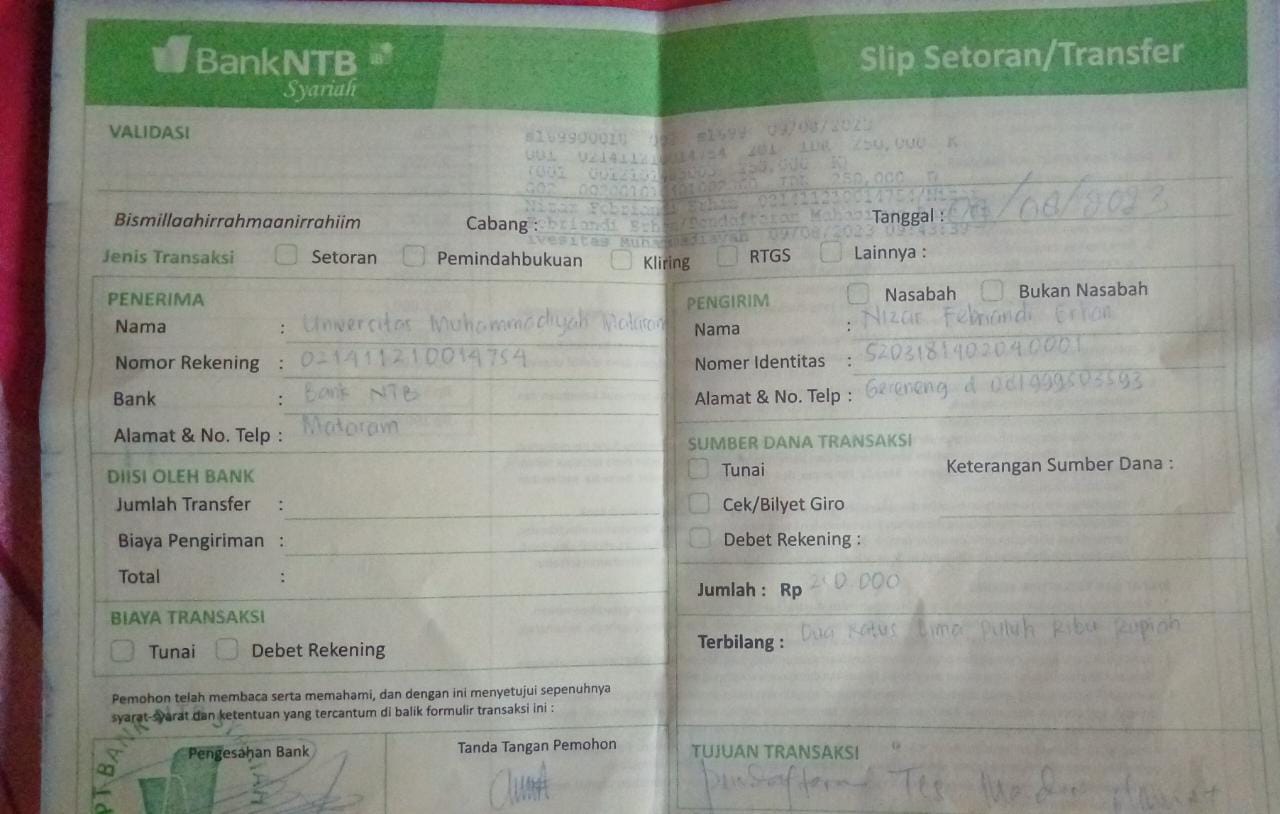 BankNTB
Syariah
Slip Setoran/Transfer
VALIDASI
09/08/2023
250,000 K
250,000
Bismillaahirrahmaanirrahiim
Cabang :
Tanggal : 09/08/2023
09/08/2023
Jenis Transaksi Setoran Pemindahbukuan Kliring RTGS Lainnya :
PENERIMA
Nama : Universitas Muhammadiyah Mataram
Nomor Rekening : 021411210014754
Bank : Bank NTB
Alamat & No. Telp : Mataram
DIISI OLEH BANK
Jumlah Transfer :
Biaya Pengiriman :
Total :
BIAYA TRANSAKSI
Tunai Debet Rekening
Pemohon telah membaca serta memahami, dan dengan ini menyetujui sepenuhnya
syarat-syarat dan ketentuan yang tercantum di balik formulir transaksi ini :
Pengesahan Bank
Tanda Tangan Pemohon
PT BANK NTB SYARIAH
PENGIRIM Nasabah Bukan Nasabah
Nama : Nizar Febriandi Erhan
Nomer Identitas : 5203181402040001
Alamat & No. Telp : Gereneng
SUMBER DANA TRANSAKSI
Tunai
Keterangan Sumber Dana :
Cek/Bilyet Giro
Debet Rekening :
Jumlah : Rp
Terbilang : Dua Ratus Lima Puluh Ribu Rupiah
TUJUAN TRANSAKSI
Tes